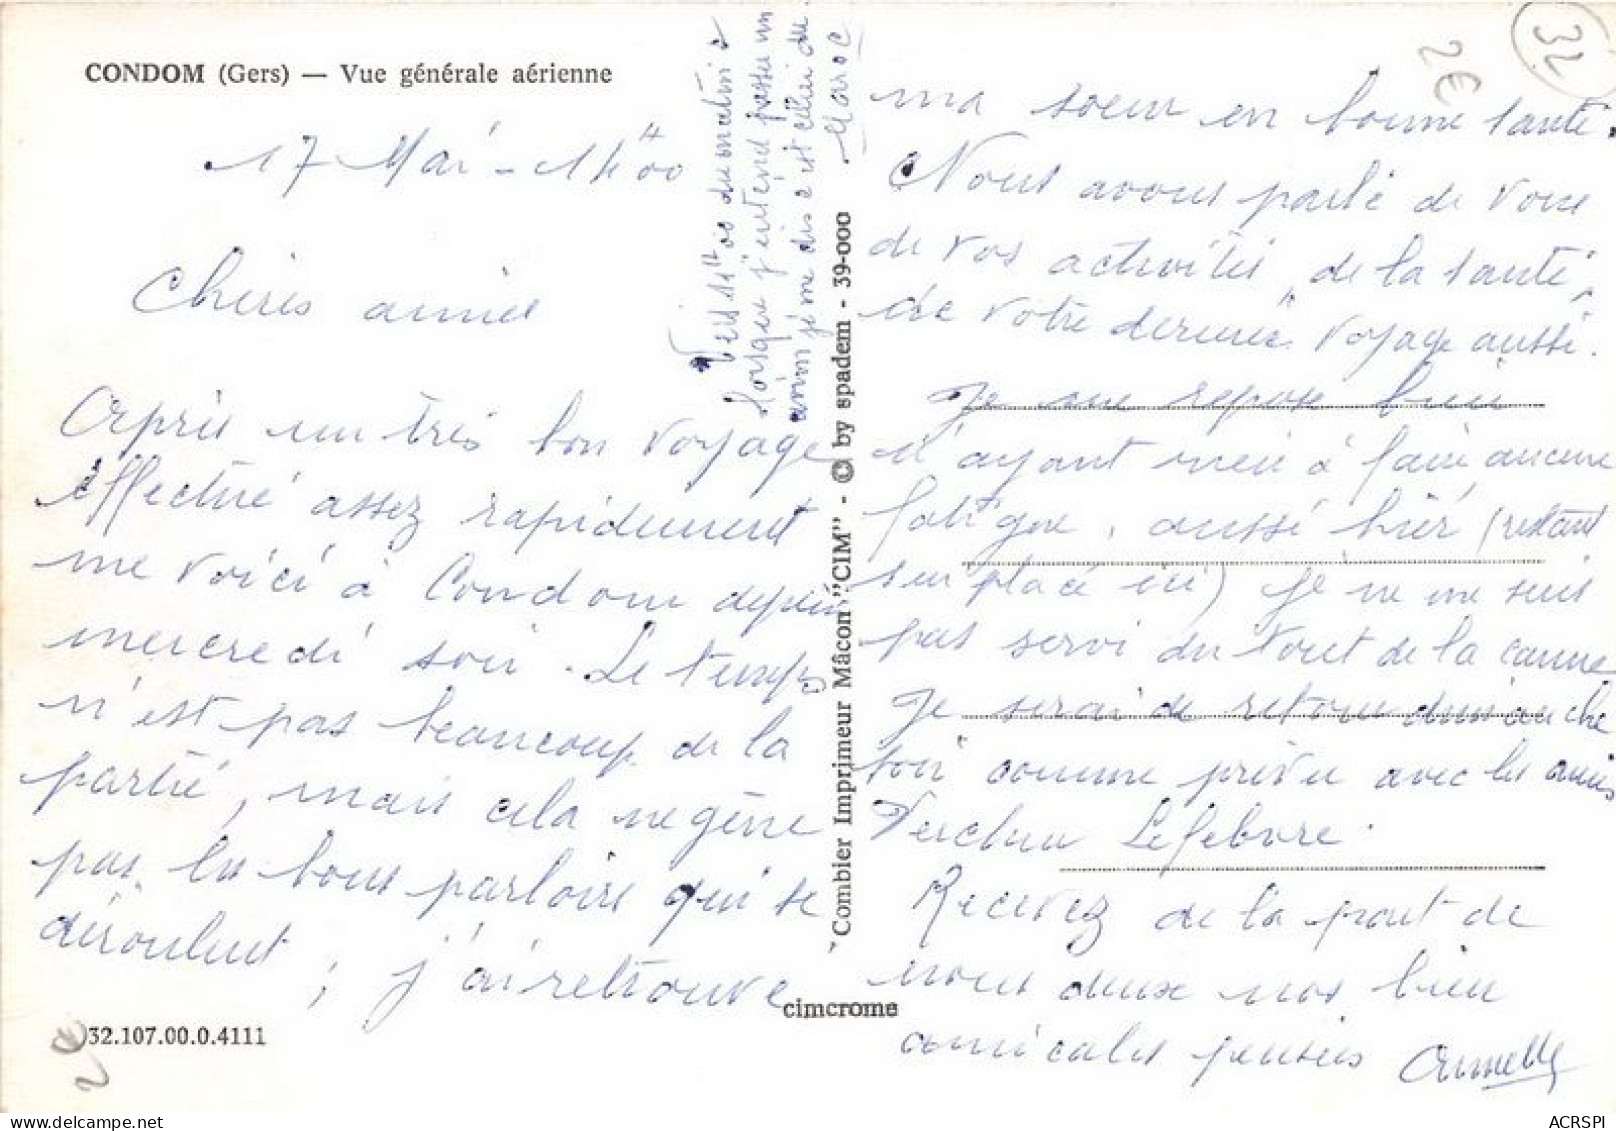 CONDOM (Gers) — Vue générale aérienne
17 Mai - 14H00
Chères amies
Après un très bon voyage
effectué assez rapidement
me voici à Condom depuis
mercredi soir. Le temps
n'est pas beaucoup de la
partie, mais cela ne gêne
pas les bons parloirs qui se
déroulent ; j'ai retrouvé
32.107.00.0.4111
Vers 11H00 du matin
lorsque j'entend passer un
avion je me dis c'est celui du
Maroc
"Combier Imprimeur Mâcon "CIM" - © by spadem - 39-000
cimcrome
2€
32
ma soeur en bonne santé.
Nous avons parlé de vous
de vos activités "de la santé"
de votre dernier voyage aussi.
Je me repose bien
n'ayant rien à faire, aucune
fatigue, aussi hier (restant
sur place ici) je ne me suis
pas servi du tout de la canne
Je serai de retour dimanche
soir comme prévu avec les amis
Lefebvre.
Recevez de la part de
nous deux nos bien
amicales pensées Armelle
2€
ACRSPI